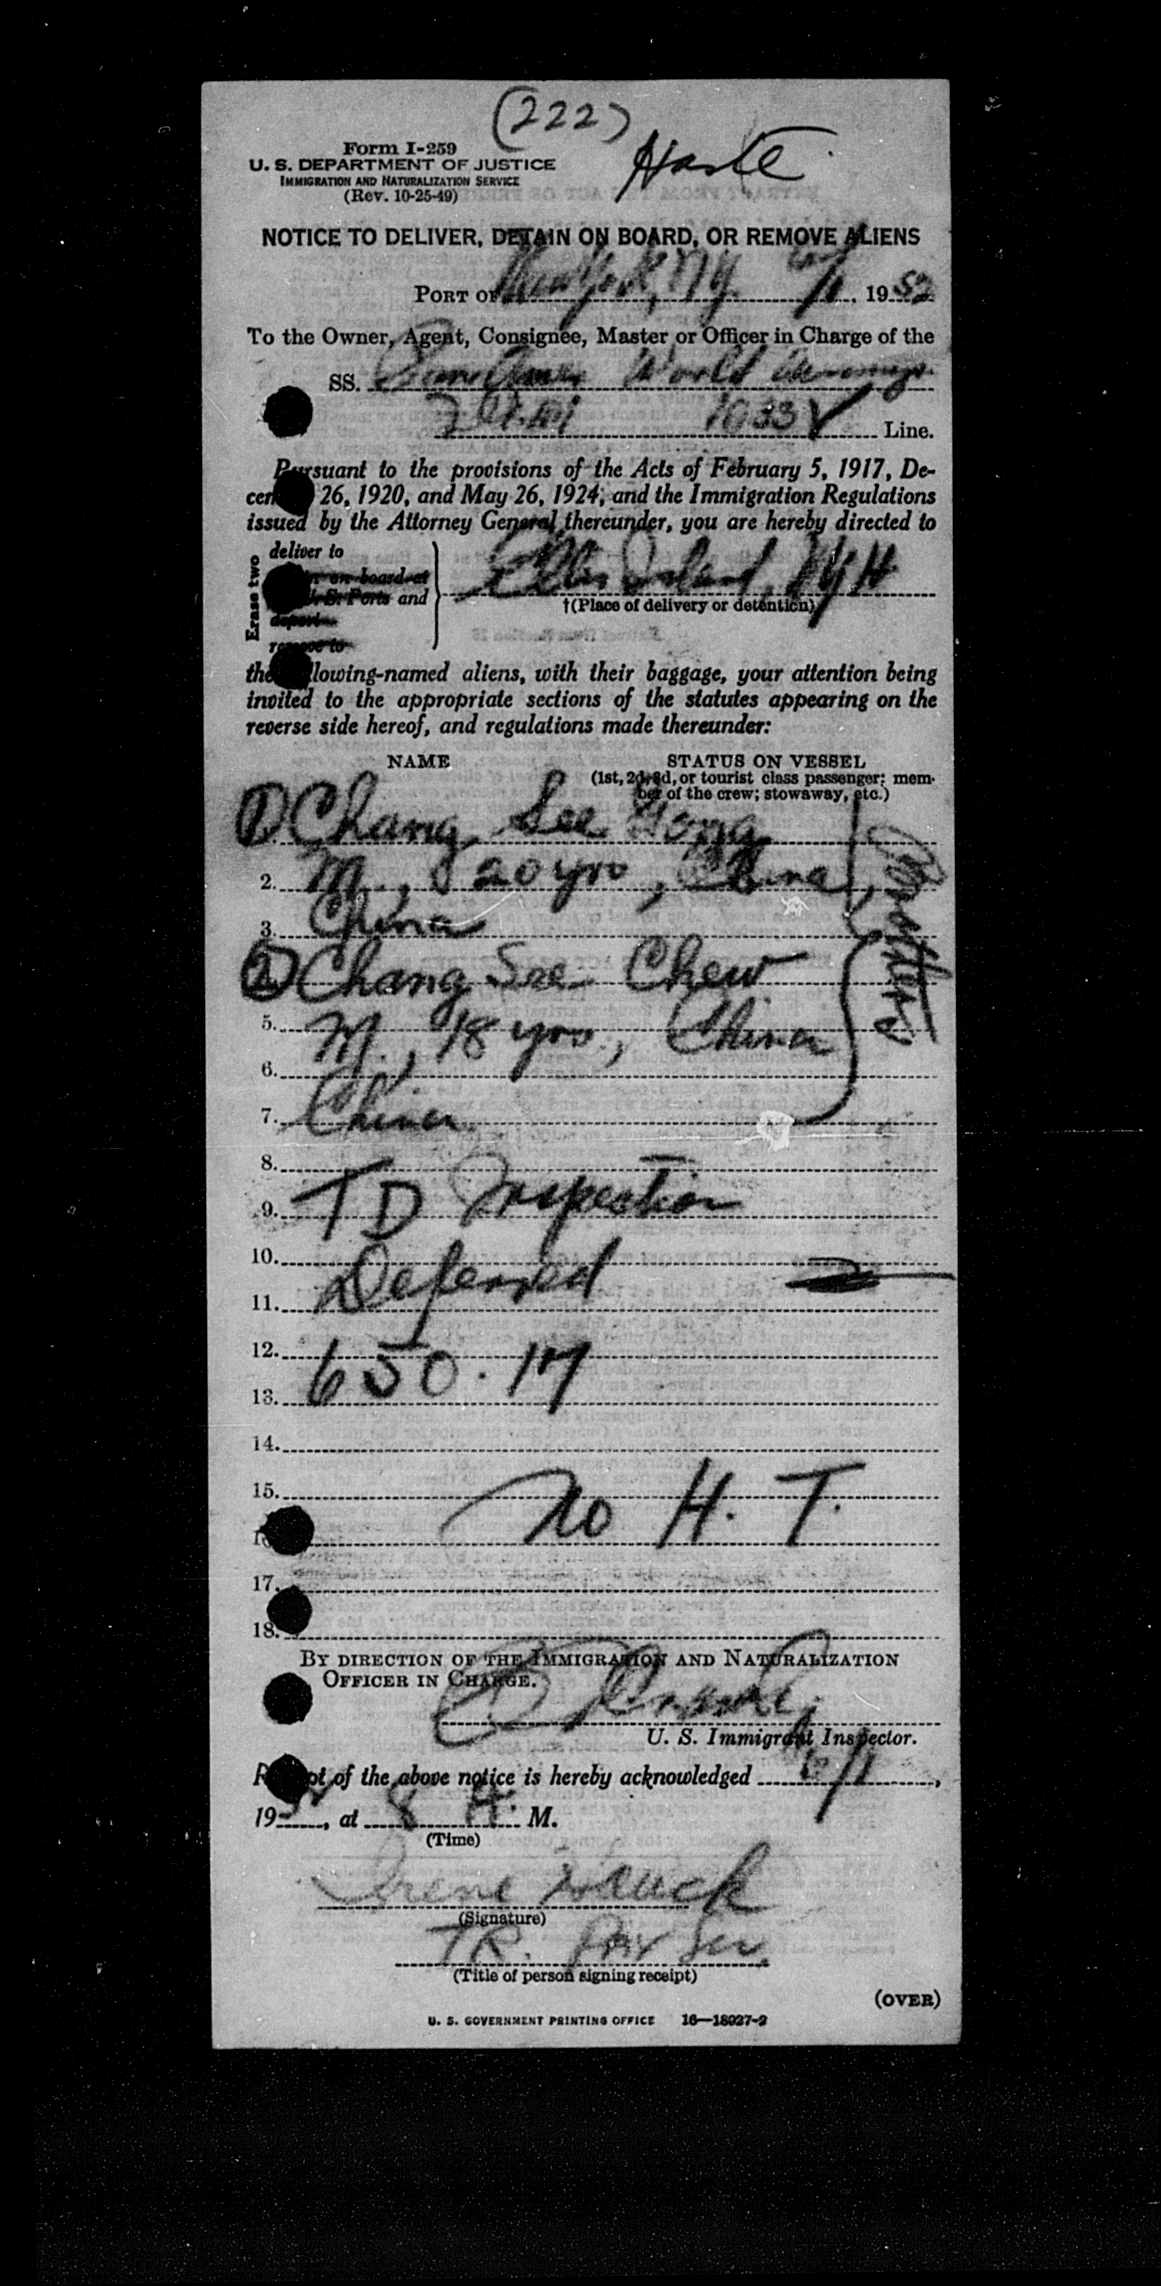 (222)
Form I-259
U. S. DEPARTMENT OF JUSTICE
IMMIGRATION AND NATURALIZATION SERVICE
(Rev. 10-25-49)
NOTICE TO DELIVER, DETAIN ON BOARD, OR REMOVE ALIENS
PORT OF New York, N.Y. 6/1, 1952
To the Owner, Agent, Consignee, Master or Officer in Charge of the
SS. Pan Amer World Airways
1033 Line.
Pursuant to the provisions of the Acts of February 5, 1917, De-
cem 26, 1920, and May 26, 1924, and the Immigration Regulations
issued by the Attorney General thereunder, you are hereby directed to
Erase two
deliver to
on board at
U. S. Ports and
deport
remove to
Ellis Island, NYH
†(Place of delivery or detention)
the following-named aliens, with their baggage, your attention being
invited to the appropriate sections of the statutes appearing on the
reverse side hereof, and regulations made thereunder:
NAME STATUS ON VESSEL
(1st, 2d, 3d, or tourist class passenger; mem-
ber of the crew; stowaway, etc.)
1 Chang, See Gong
2. M., 20 yrs, China,
3. China
Brothers
2 Chang See Chew
5. M., 18 yrs., China
6.
7. China
8.
9. TD Inspection
10.
11. Deferred
12.
13. 650.17
14.
15.
16 No H. T.
17.
18.
BY DIRECTION OF THE IMMIGRATION AND NATURALIZATION
OFFICER IN CHARGE.
U. S. Immigrant Inspector.
Receipt of the above notice is hereby acknowledged 6/1,
1952, at 8 A. M.
(Time)
Irene
(Signature)
TR. Ser.
(Title of person signing receipt)
(OVER)
U. S. GOVERNMENT PRINTING OFFICE 16—18027-2